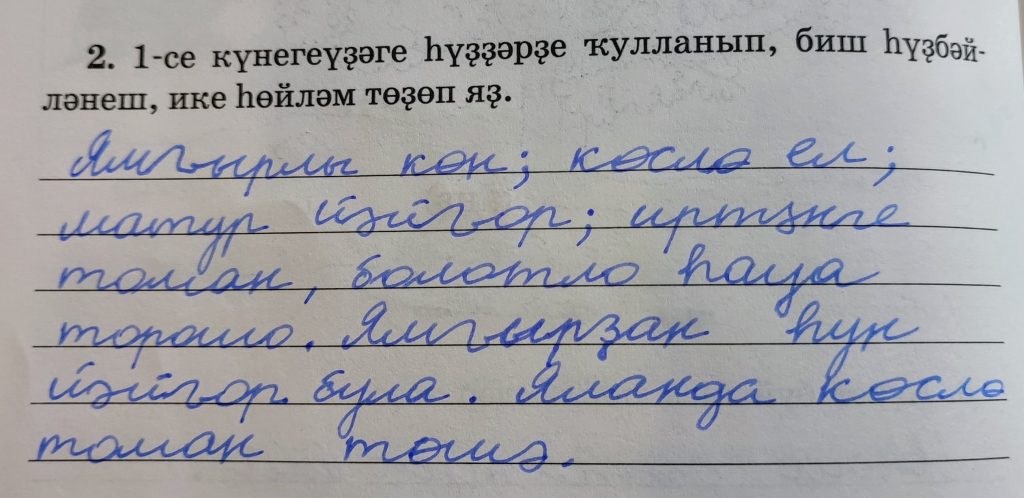 2. 1-се күнегеүҙәге һүҙҙәрҙе ҡулланып, биш һүҙбәй-
ләнеш, ике һөйләм төҙөп яҙ.
Ямғырлы көн; көслө ел;
матур йәйғор; иртәнге
томан, болотло һауа
торошо. Ямғырҙан һуң
йәйғор була. Яланда көслө
томан төшә.